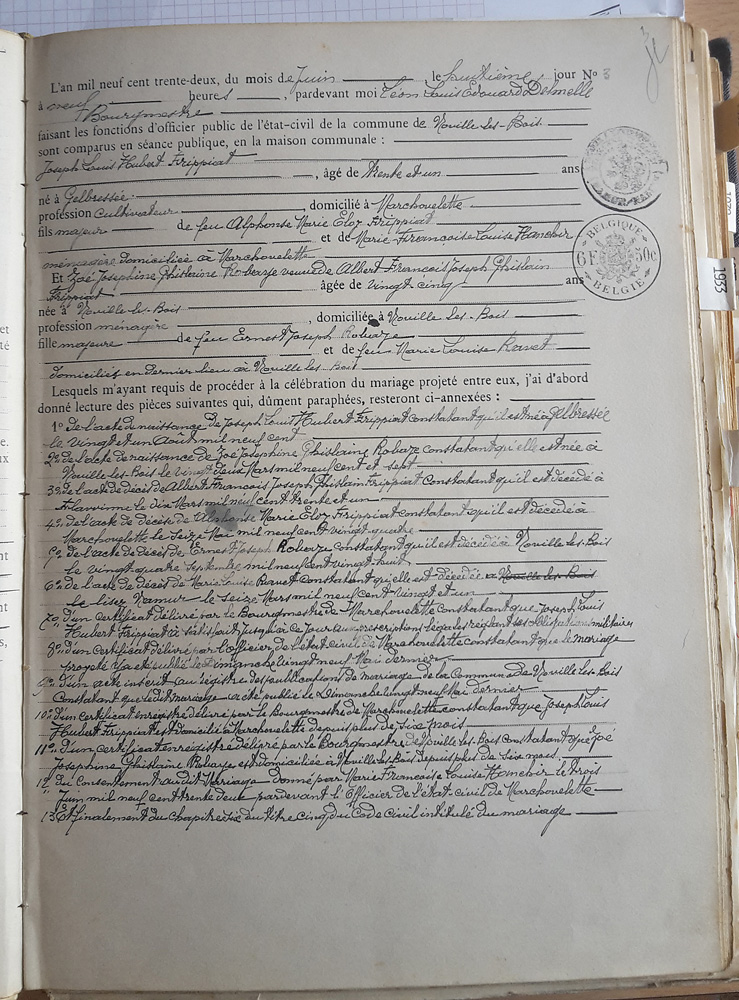 L'an mil neuf cent trente-deux, du mois de Juin le huitième jour No 3
à neuf heures, pardevant moi Léon Louis Edouard Delmelle
Bourgmestre
faisant les fonctions d'officier public de l'état-civil de la commune de Noville-les-Bois
sont comparus en séance publique, en la maison communale :
Joseph Louis Hubert Frippiat
, âgé de trente et un ans
né à Gelbressée
profession Cultivateur, domicilié à Marchovelette
fils majeur de feu Alphonse Marie Eloy Frippiat
et de Marie Françoise Louise Hanchir
ménagère domiciliée à Marchovelette
Et Zoé Josephine Ghislaine Robaze veuve de Albert François Joseph Ghislain
Frippiat âgée de vingt cinq ans
née à Noville-les-Bois
profession ménagère, domiciliée à Noville-les-Bois
fille majeure de feu Ernest Joseph Robaze
et de feu Marie Louise Ravet
domiciliés en dernier lieu à Noville les-Bois
Lesquels m'ayant requis de procéder à la célébration du mariage projeté entre eux, j'ai d'abord
donné lecture des pièces suivantes qui, dûment paraphées, resteront ci-annexées :
1° de l'acte de naissance de Joseph Louis Hubert Frippiat constatant qu'il est né à Gelbressée
le vingt et un Août mil neuf cent
2° de l'acte de naissance de Zoé Josephine Ghislaine Robaze constatant qu'elle est née à
Noville-les-Bois le vingt deux Mars mil neuf cent et sept
3° de l'acte de décès de Albert François Joseph Ghislain Frippiat constatant qu'il est décédé à
Flawinne le dix Mars mil neuf cent trente et un
4° de l'acte de décès de Alphonse Marie Eloy Frippiat constatant qu'il est décédé à
Marchovelette le seize Mai mil neuf cent vingt-quatre
5° de l'acte de décès de Ernest Joseph Robaze constatant qu'il est décédé à Noville-les-Bois
le vingt quatre Septembre mil neuf cent vingt-huit
6° de l'acte de décès de Marie Louise Ravet constatant qu'elle est décédée à Noville-les-Bois
Namur le seize Mars mil neuf cent vingt et un
7° d'un certificat délivré par le Bourgmestre de Marchovelette constatant que Joseph Louis
Hubert Frippiat a satisfait jusqu'à ce jour aux prescriptions légales réglant les obligations militaires
8° d'un Certificat délivré par l'officier de l'état-civil de Marchovelette constatant que le mariage
projeté y a été publié le Dimanche vingt neuf Mai dernier
9° d'un acte inscrit au registre des publications de mariage de la Commune de Noville-les-Bois
Constatant que ledit mariage a été publié le Dimanche vingt neuf Mai dernier
10° d'un certificat enregistré délivré par le Bourgmestre de Marchovelette constatant que Joseph Louis
Hubert Frippiat est domicilié à Marchovelette depuis plus de six mois
11° d'un certificat enregistré délivré par le Bourgmestre de Noville-les-Bois Constatant que Zoé
Josephine Ghislaine Robaze est domiciliée à Noville-les-Bois depuis plus de six mois
12° du Consentement audit Mariage donné par Marie Françoise Louise Hanchir le trois
Juin mil neuf cent trente deux pardevant l'Officier de l'état-civil de Marchovelette
13° Et finalement du chapitre six du titre cinq du Code civil intitulé du mariage
BELGIQUE
6 F 50 c
BELGIË
1933